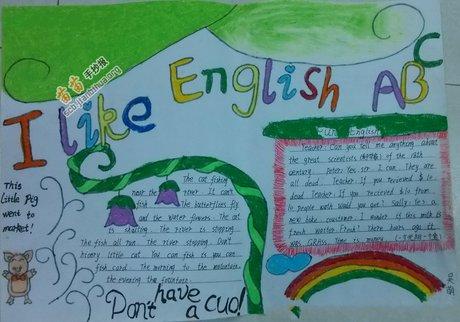 苗苗手抄报
I like English ABC
This
Little Pig
went to
market!
The cat fishing
near the river. It can't
fish. The butterflies fly
and the water flowers. The cat
is The river is stopping.
The fish all run. The river stopping. Don't
hirory little cat. You can fish is you can
fish card. The morning to the
the evening the
Don't have
a cuo!
Fun English
Teacher: Can you tell me anything about
the great scientists of the 18th
century. Peter: Yes, sir I can. They are
all dead. Teacher: If you received $10
dead. Teacher: If you received $10 from
10 people what would you get? Sally:
new bike. customer: I wonder if this milk is
fresh. Waiter: Fresh? There hours ago it
was GRASS. Time is money